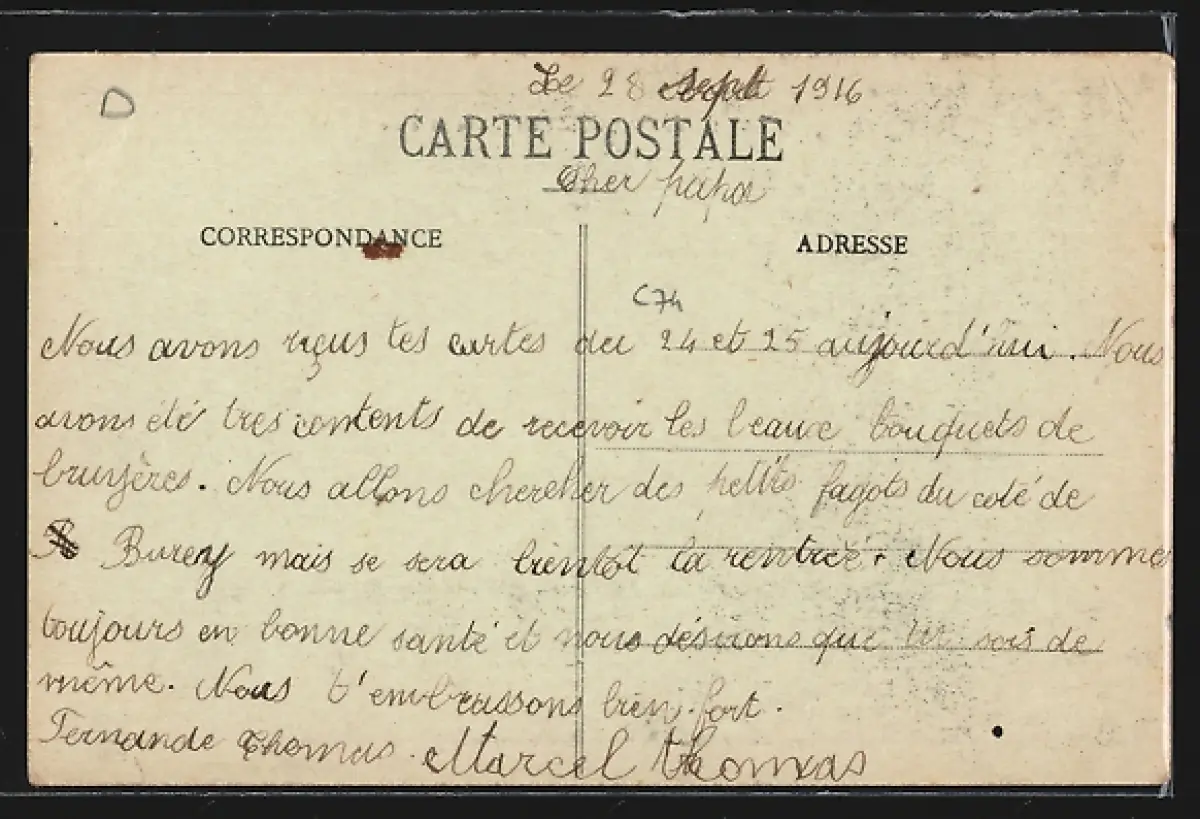 Le 28 Sept 1916
D
CARTE POSTALE
Cher papa
CORRESPONDANCE
ADRESSE
C74
Nous avons reçus tes cartes du 24 et 25 aujourd'hui. Nous
avons été tres contents de recevoir les beaux bouquets de
bruyères. Nous allons chercher des petits fagots du coté de
Burey mais se sera bientôt la rentrée. Nous somme
toujours en bonne santé et nous désirons que tu sois de
même. Nous t'embrassons bien fort.
Fernande Thomas. Marcel Thomas